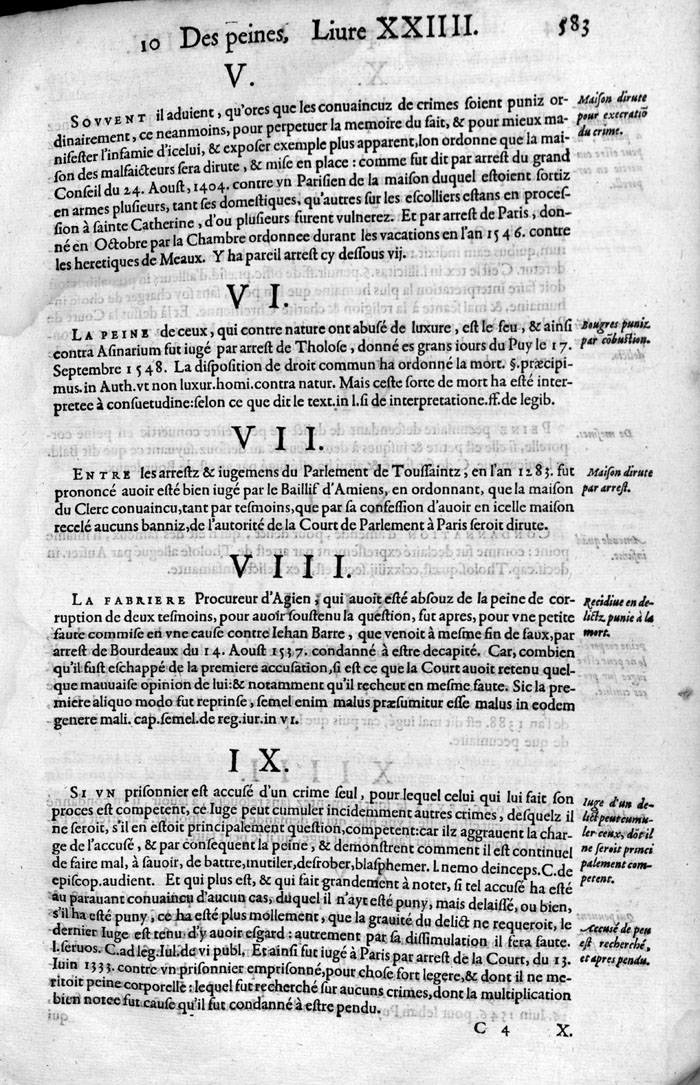 10 Des peines, Liure XXIIII. 583
V.
SOVVENT il aduient, qu'ores que les conuaincuz de crimes soient puniz or-
dinairement, ce neanmoins, pour perpetuer la memoire du fait, & pour mieux ma-
nifester l'infamie d'icelui, & exposer exemple plus apparent, lon ordonne que la mai-
son des malfaicteurs sera dirute, & mise en place : comme fut dit par arrest du grand
Conseil du 24. Aoust, 1404. contre vn Parisien de la maison duquel estoient sortiz
en armes plusieurs, tant ses domestiques, qu'autres sur les escolliers estans en proces-
sion à sainte Catherine, d'ou plusieurs furent vulnerez. Et par arrest de Paris, don-
né en Octobre par la Chambre ordonnee durant les vacations en l'an 1546. contre
les heretiques de Meaux. Y ha pareil arrest cy dessous vij.
Maison dirute
pour execratiõ
du crime.
VI.
LA PEINE de ceux, qui contre nature ont abusé de luxure, est le feu, & ainsi
contra Asinarium fut iugé par arrest de Tholose, donné es grans iours du Puy le 17.
Septembre 1548. La disposition de droit commun ha ordonné la mort. §. præcipi-
mus. in Auth. vt non luxur. homi. contra natur. Mais ceste sorte de mort ha esté inter-
pretee à consuetudine: selon ce que dit le text. in l. si de interpretatione. ff. de legib.
Bougres puniz
par cõbustion.
VII.
ENTRE les arrestz & iugemens du Parlement de Toussaintz, en l'an 1283. fut
prononcé auoir esté bien iugé par le Baillif d'Amiens, en ordonnant, que la maison
du Clerc conuaincu, tant par tesmoins, que par sa confession d'auoir en icelle maison
recelé aucuns banniz, de l'autorité de la Court de Parlement à Paris seroit dirute.
Maison dirute
par arrest.
VIII.
LA FABRIERE Procureur d'Agien, qui auoit esté absouz de la peine de cor-
ruption de deux tesmoins, pour auoir soustenu la question, fut apres, pour vne petite
faute commise en vne cause contre Iehan Barre, que venoit à mesme fin de faux, par
arrest de Bourdeaux du 14. Aoust 1537. condanné à estre decapité. Car, combien
qu'il fust eschappé de la premiere accusation, si est ce que la Court auoit retenu quel-
que mauuaise opinion de lui: & notamment qu'il recheut en mesme faute. Sic la pre-
miere aliquo modo fut reprinse, semel enim malus præsumitur esse malus in eodem
genere mali. cap. semel. de reg. iur. in VI.
Recidiue en de-
lictz punie à la
mort.
IX.
SI VN prisonnier est accusé d'un crime seul, pour lequel celui qui lui fait son
proces est competent, ce Iuge peut cumuler incidemment autres crimes, desquelz il
ne seroit, s'il en estoit principalement question, competent: car ilz aggrauent la char-
ge de l'accusé, & par consequent la peine, & demonstrent comment il est continuel
de faire mal, à sauoir, de battre, mutiler, desrober, blasphemer. l. nemo deinceps. C. de
episcop. audient. Et qui plus est, & qui fait grandement à noter, si tel accusé ha esté
au parauant conuaincu d'aucun cas, duquel il n'ayt esté puny, mais delaissé, ou bien,
s'il ha esté puny, ce ha esté plus mollement, que la grauité du delict ne requeroit, le
dernier Iuge est tenu d'y auoir esgard : autrement par sa dissimulation il fera faute.
l. seruos. C. ad leg. Iul. de vi publ. Et ainsi fut iugé à Paris par arrest de la Court, du 13.
Iuin 1333. contre vn prisonnier emprisonné, pour chose fort legere, & dont il ne me-
ritoit peine corporelle : lequel fut recherché sur aucuns crimes, dont la multiplication
bien notee fut cause qu'il fut condanné à estre pendu.
Iuge d'un de-
lict peut cumu-
ler ceux, dõt il
ne seroit princi
palement com-
petent.
Accusé de peu
est recherché,
et apres pendu.
C 4 X.